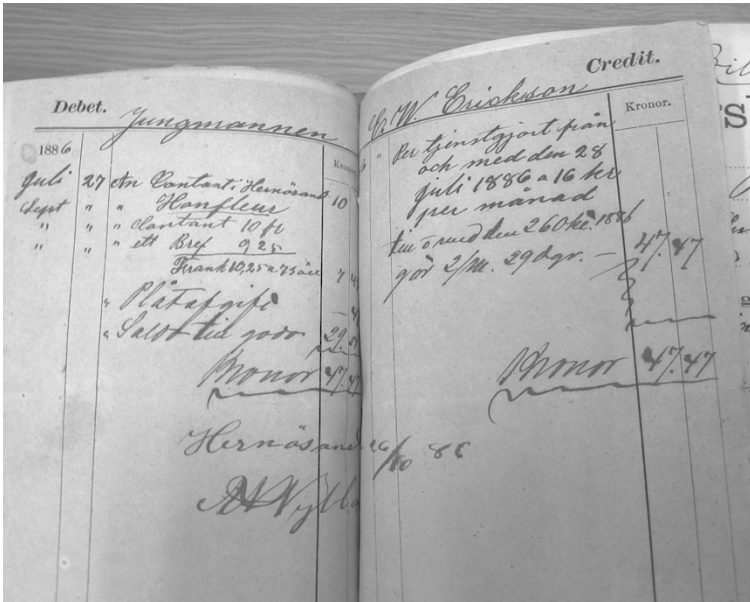 Debet.
Jungmannen
1886
Kronor
juli 27 An Contant i Hernösand 10
Sept " " Honfleur
" " " Contant 10 fr
" " " ett Bref 0,25
Frank 10,25 a 75 öre 7
" Plåtafgift
" Saldo till godo 29
Kronor 47.47
Hernösand 26/10 86
Credit.
C. W. Erickson
Kronor.
" Per tjenstgjort från
och med den 28
juli 1886 a 16 kr
per månad
till o med den 26 Okt. 1886
gör 2/m. 29 dgr. — 47.47
Kronor 47.47